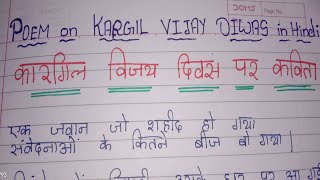 DOMS Page No.
POEM on KARGIL VIJAY DIWAS in Hindi
कारगिल विजय दिवस पर कविता
एक जवान जो शहीद हो गया
संवेदनाओं के कितने बीज बो गया।